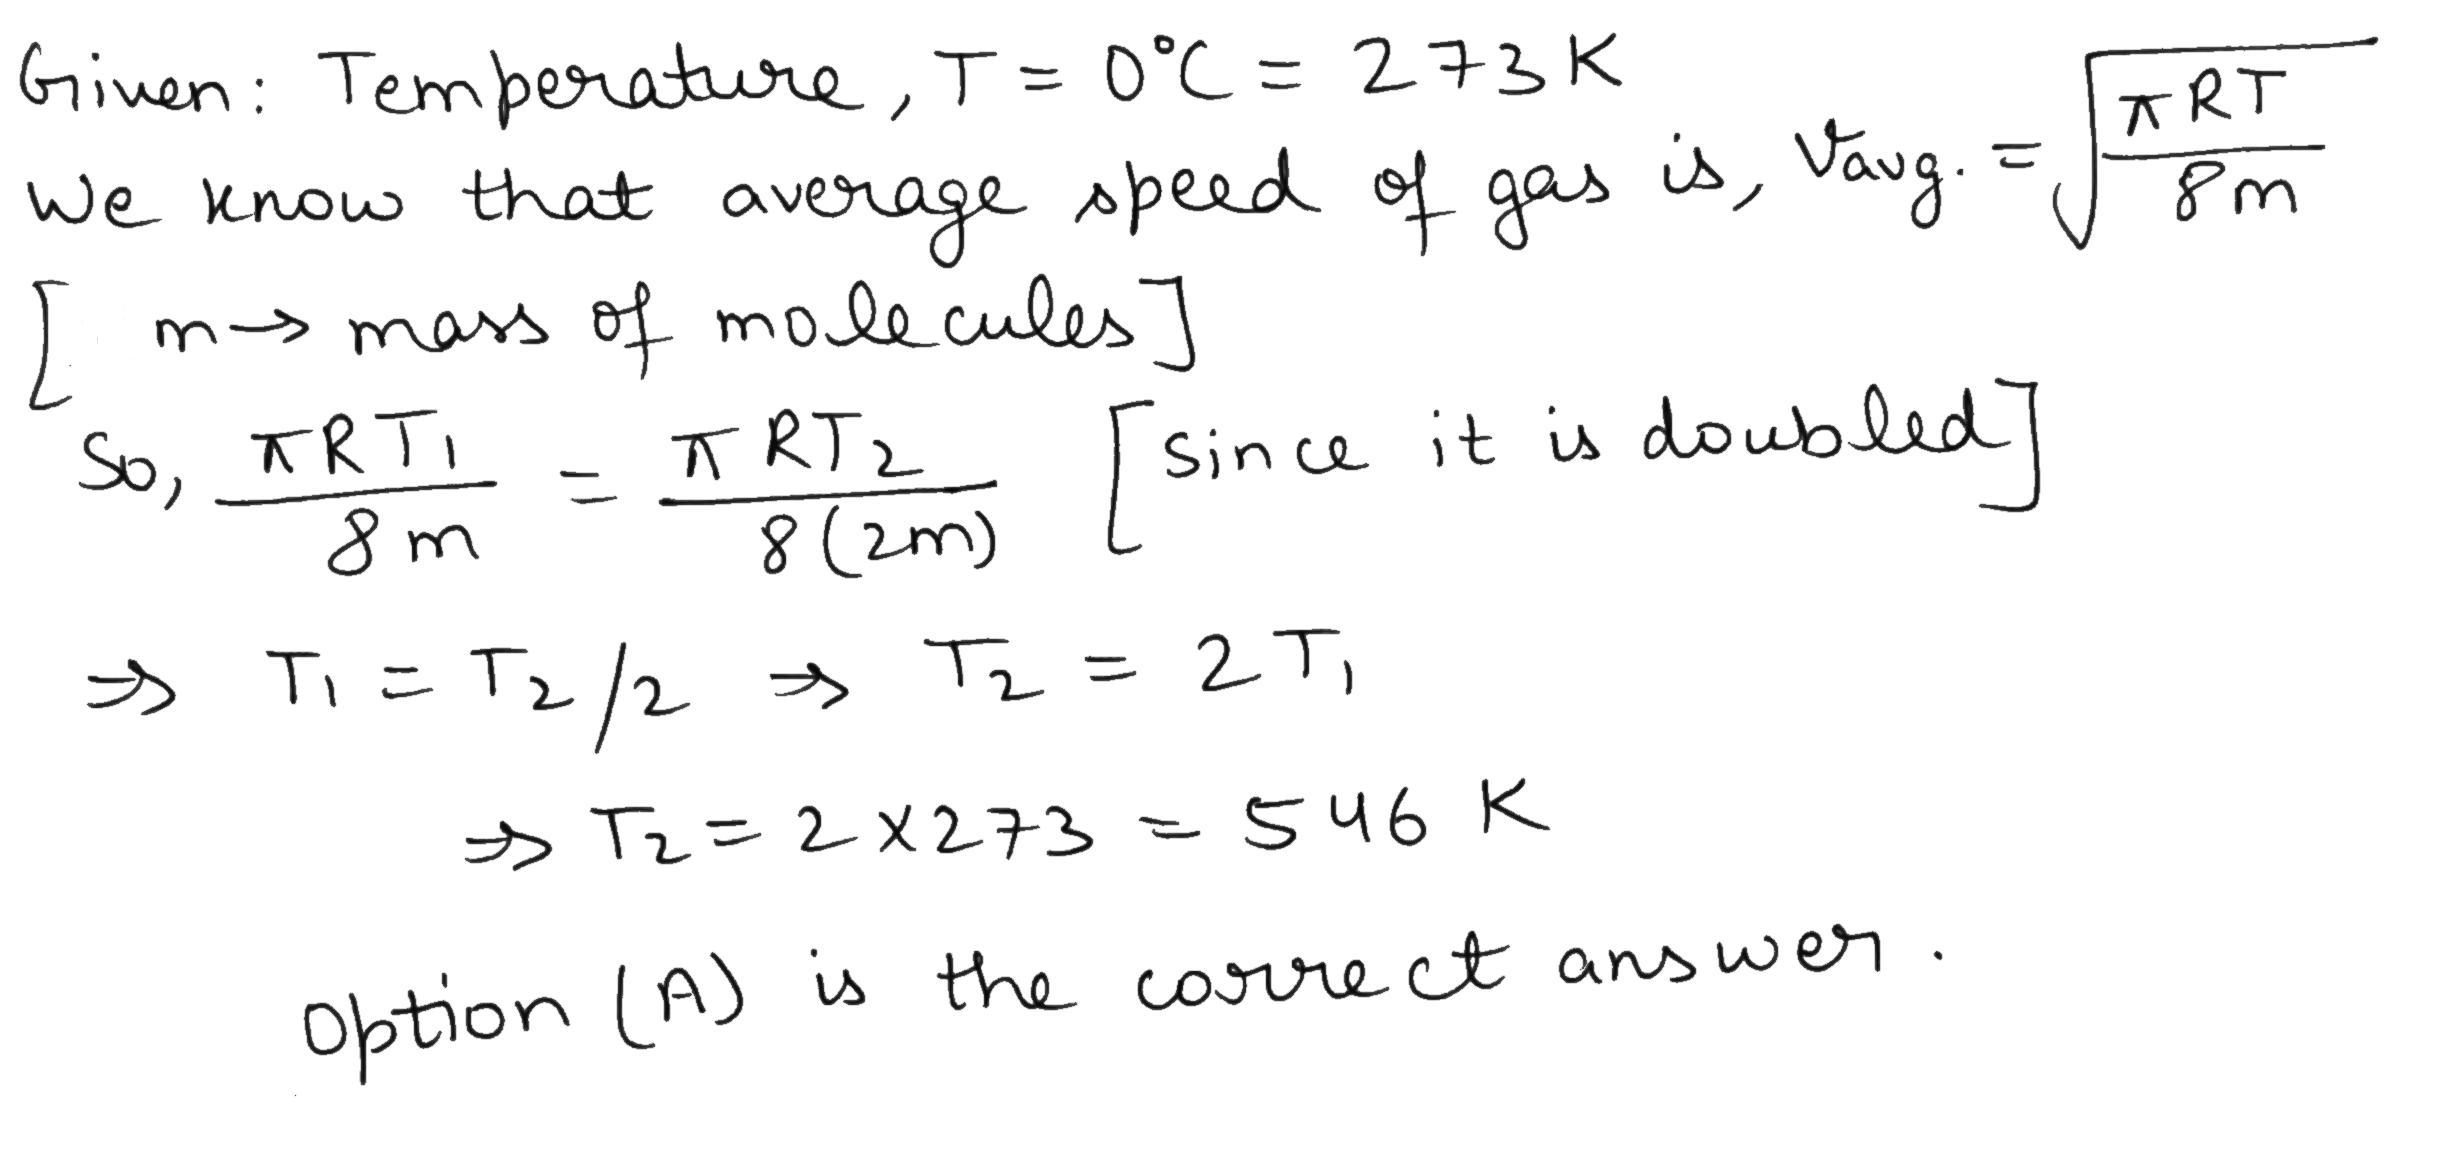 Given: Temperature, T = 0°C = 273 K
We know that average speed of gas is, Vavg. = √(πRT/8m)
[ m → mass of molecules]
So, πRT₁/8m = πRT₂/8(2m) [since it is doubled]
⇒ T₁ = T₂/2 ⇒ T₂ = 2T₁
⇒ T₂ = 2 × 273 = 546 K
Option (A) is the correct answer.